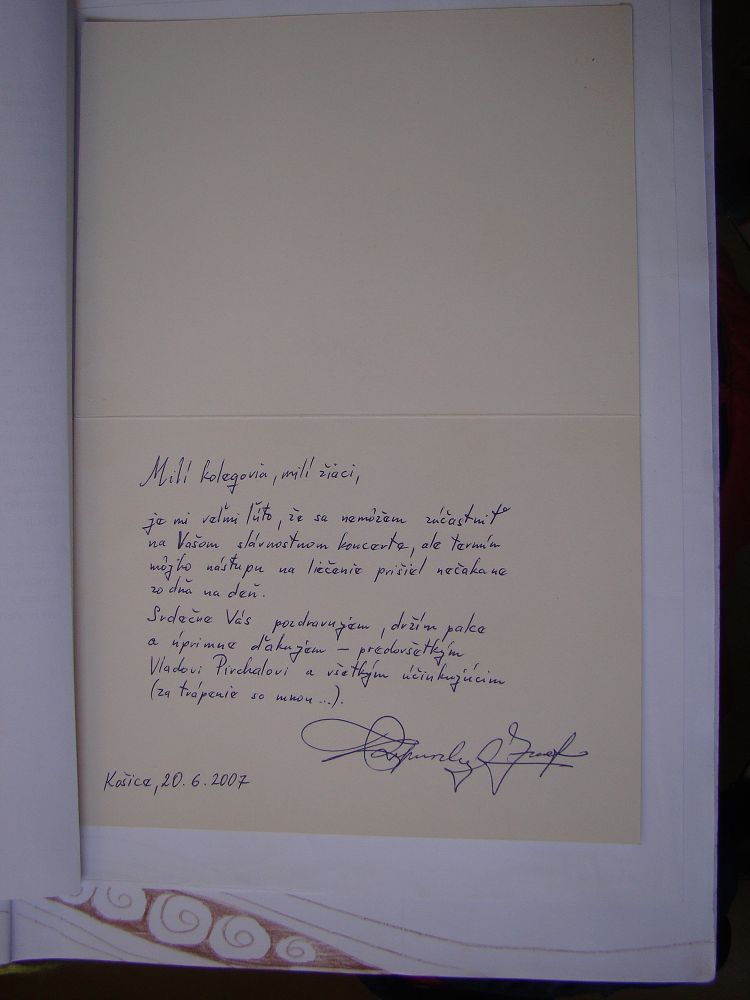 Milí kolegovia, milí žiaci,
je mi veľmi ľúto, že sa nemôžem zúčastniť
na Vašom slávnostnom koncerte, ale termín
môjho nástupu na liečenie prišiel nečakane
zo dňa na deň.
Srdečne Vás pozdravujem, držím palce
a úprimne ďakujem – predovšetkým
Vladovi Pirchalovi a všetkým účinkujúcim
(za trápenie so mnou...).
Košice, 20.6.2007